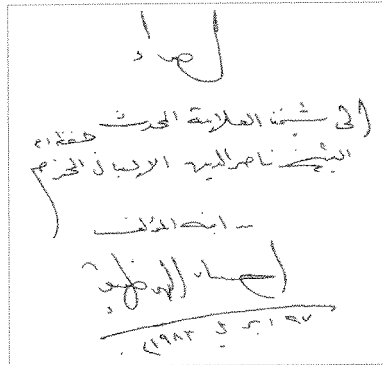 إهداء
إلى شيخنا العلامة المحدث حفظه الله
الشيخ ناصر الدين الألباني المحترم
من ابنه المؤلف
ابريل ١٩٨٣م